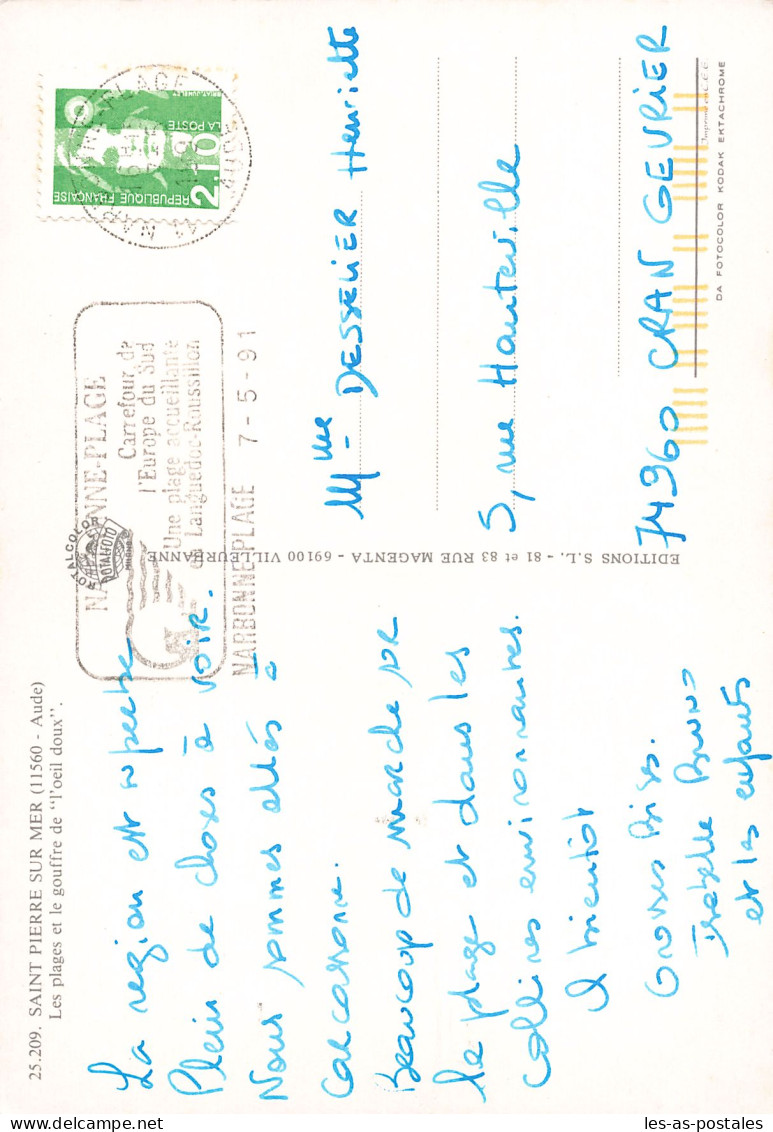 25.209. SAINT PIERRE SUR MER (11560 - Aude)
Les plages et le gouffre de "l'oeil doux".
La region est superbe
Plein de choses à voir.
Nous sommes allés à
Carcassonne.
Beaucoup de marche sur
la plage et dans les
collines environnantes.
A bientôt
Grosses Bises.
Isabelle Bruno
et les enfants
ROTALCOLOR
ROTALFOTO
MILANO
EDITIONS S.L. - 81 et 83 RUE MAGENTA - 69100 VILLEURBANNE
NARBONNE-PLAGE
Carrefour de
l'Europe du Sud
Une plage accueillante
en Languedoc-Roussillon
NARBONNE PLAGE 7-5-91
11 NARBONNE-PLAGE
AUDE
REPUBLIQUE FRANÇAISE
2,10
LA POSTE
BRIAT-JUMELET
Mme DESSELIER Henriette
5, rue Hauteville
74960 CRAN GEVRIER
DA FOTOCOLOR KODAK EKTACHROME
les-as-postales.com